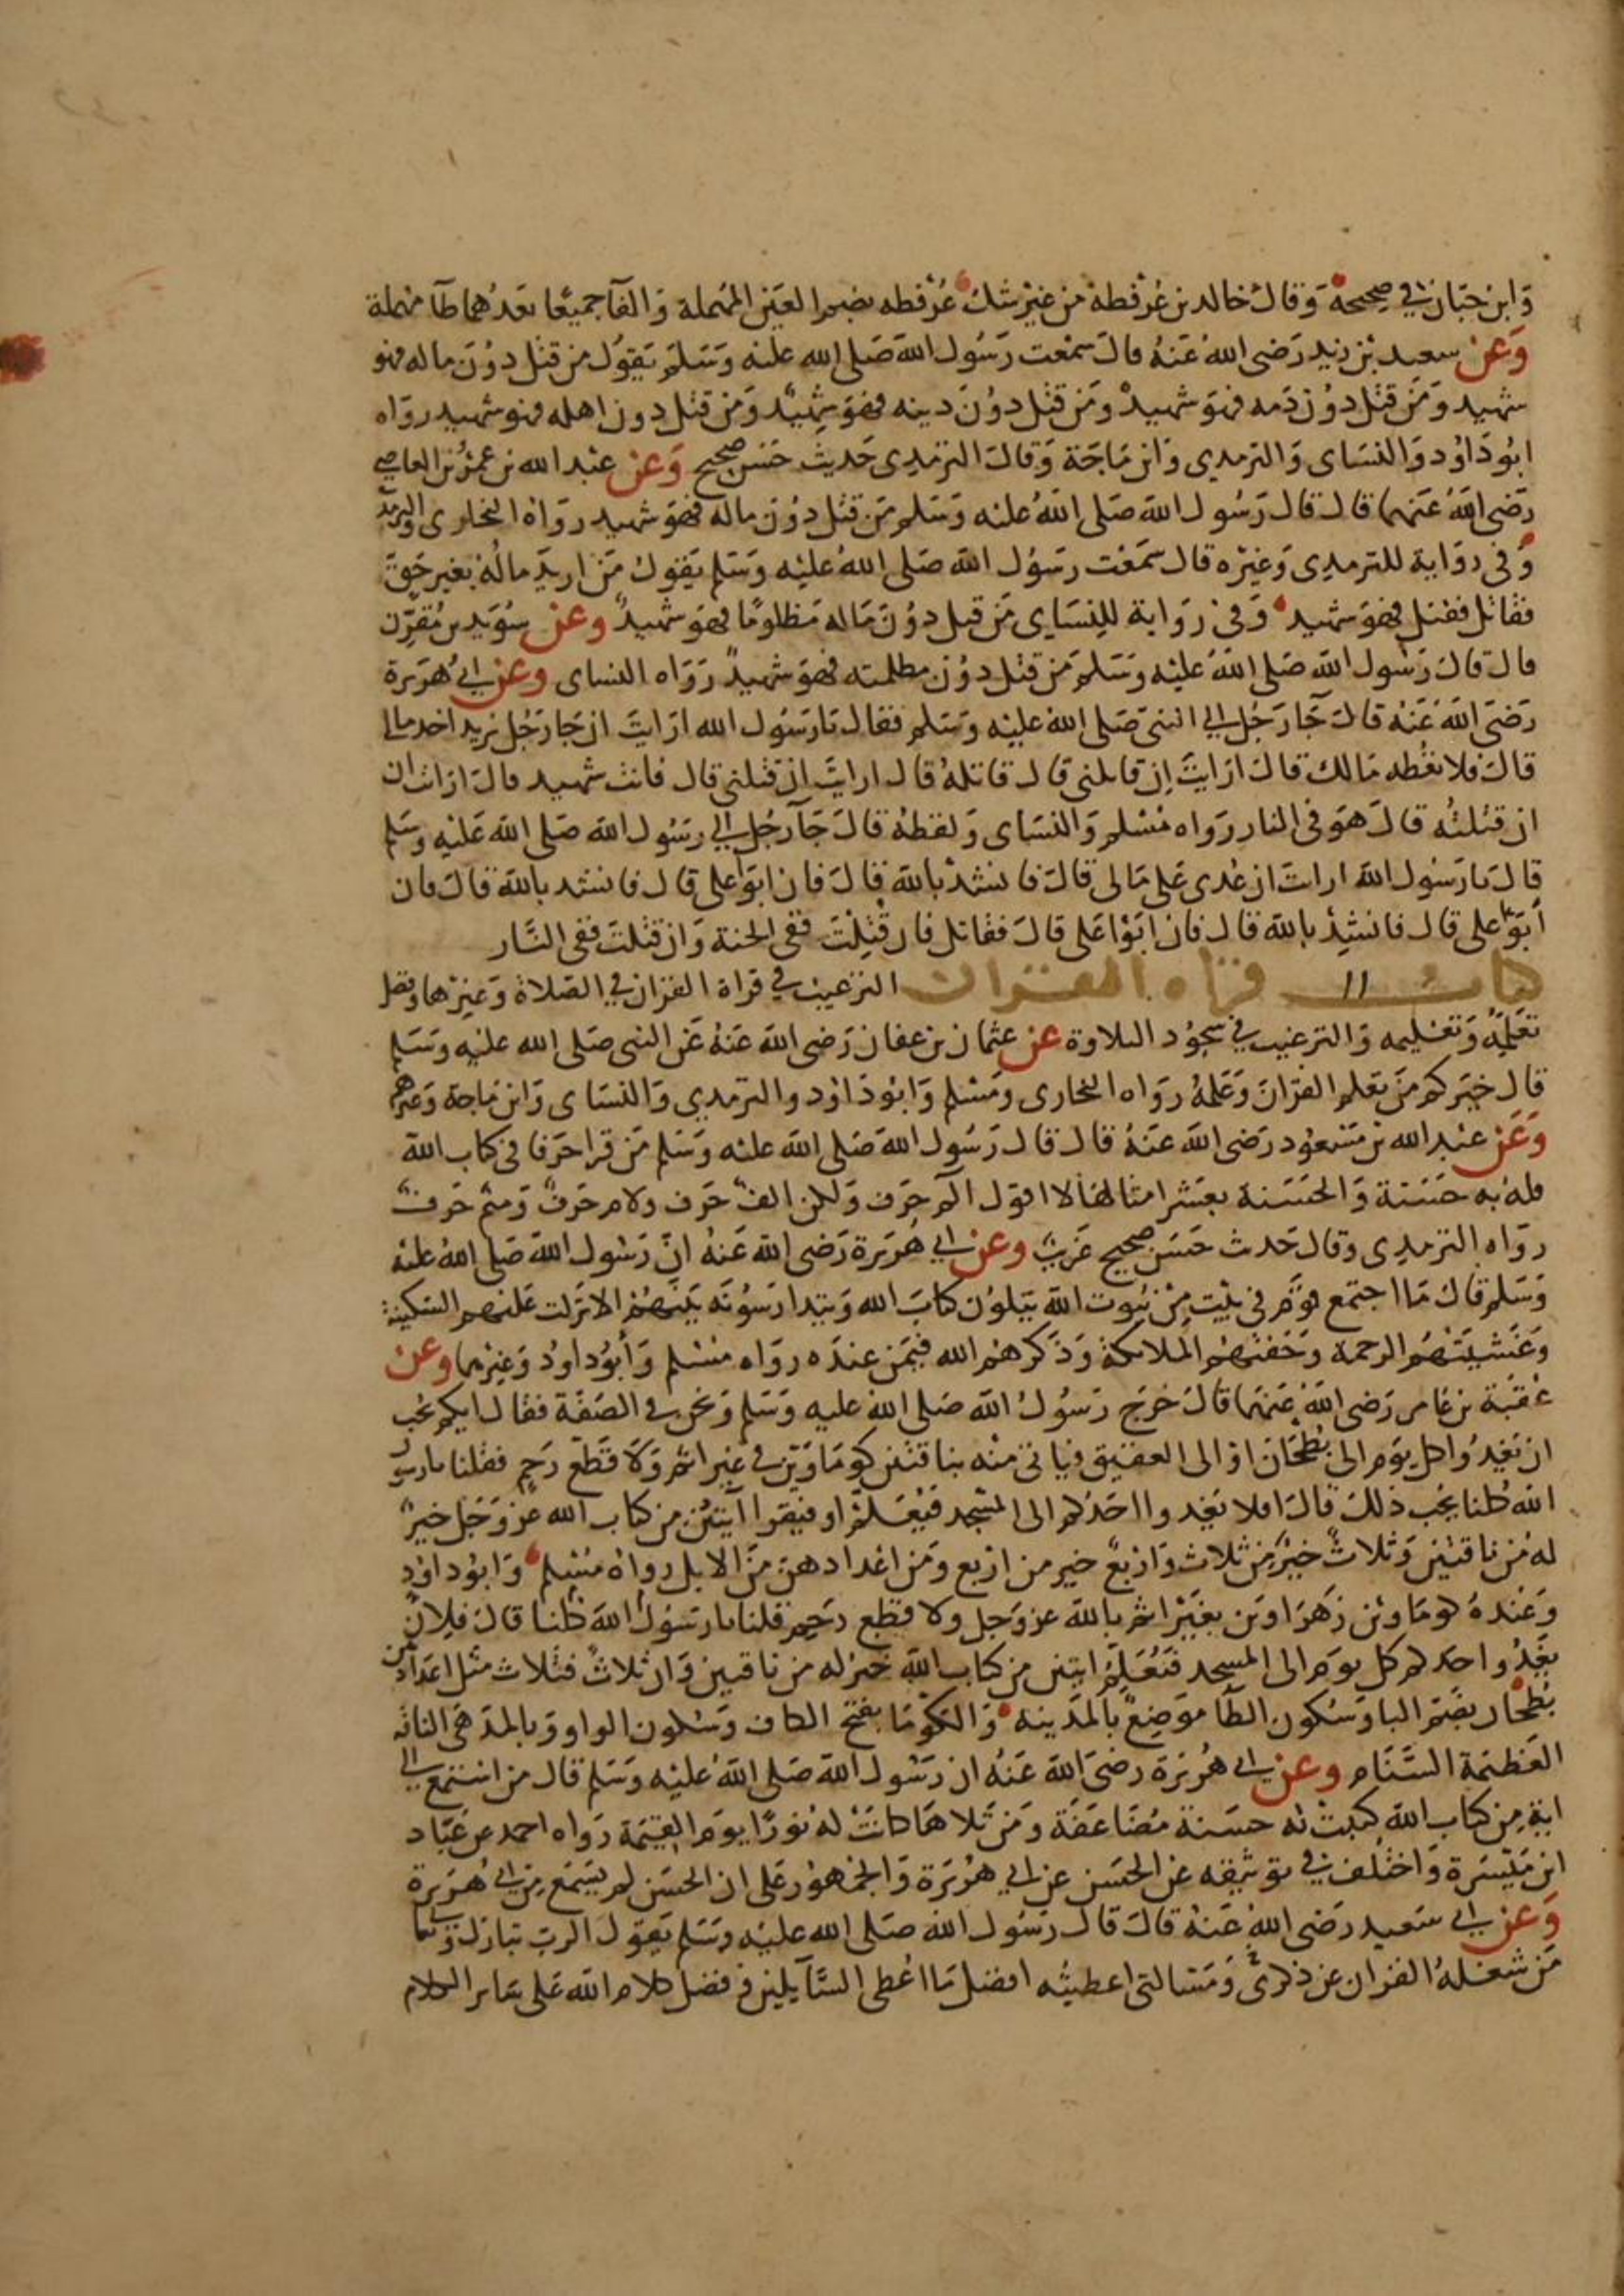 وَابن حبّان في صحيحه وَقال خالد بن عُرْفطة من غير شك عُرْفطه بضم العَين المهملة وَالفآ جميعًا بعدهما طآ مهملة
وَعن سعيد بن زيد رَضي الله عَنهُ قالَ سمعت رَسُول الله صَلى الله عليه وَسَلم يَقول من قتل دوُن ماله فهو
شهيد وَمَن قتل دوُن دَمه فهوَ شهيد وَمَن قتل دوُنَ دينه فهوَ شهيد وَمَن قتل دون اهله فهو شهيد رواه
ابُو دَاوُد وَالنسَاى وَالترمدي وَابن مَاجَة وَقالَ الترمدى حَديث حَسَن صحيح وَعن عبد الله بن عمرو بن العاصي
رَضي الله عَنهما قال قال رَسُول الله صَلى اللهُ عليه وَسَلم مَن قتل دوُنَ ماله فهوَ شهيد رواهُ البخارى والترمدي
وَفي روَاية للترمدى وَغيره قال سمَعت رسَوُل الله صَلى اللهُ عليْه وَسَلم يَقول مَن اريدَ مالُهُ بغير حَق
فقاتل فقتل فهوَ شهيد وَفي روَاية للنسَاى مَن قتل دوُنَ مَاله مَظلومًا فهوَ شهيدٌ وعن سُوَيد بن مُقَرّن
قال قالَ رَسُول الله صَلى اللهُ عليْه وَسَلم مَن قتل دوُن مظلمته فهوَ شهيدٌ رَوَاه النساى وعن ابي هُرَيرة
رَضيَ اللهُ عَنهُ قالَ جَآ رَجُل الي النبي صَلى اللهُ عليْه وَسَلم فقال يَا رَسُول الله ارَايتَ ان جَا رَجُل يريد اخد مالى
قالَ فلا تعْطه مَالك قالَ ارَايتَ اِن قاتلنى قالَ قاتلهُ قالَ ارايتَ ان قتلنى قال فانت شهيد قالَ ارَايت ان
ان قتلتُه قالَ هوَ في النار رَوَاه مُسْلم وَالنسَاى وَلفظهُ قالَ جَآ رَجُل الي رسَوُل الله صَلى الله عَليْه وَسَلم
قالَ يا رَسُول الله ارايت ان عُدى عَلى مَالى قالَ فانشدْ بالله قالَ فان ابَوا على قال فانشد بالله قالَ فان
أبَوا على قال فانشدْ بالله قال فان ابَوْا عَلى قالَ فقاتل فان قُتِلْتَ ففي الجنة وَان قتلتَ ففى النَّار
كتاب قراه القران الترغيب في قراة القران في الصَلاة وَغيرها وفضل
تعَلمهُ وَتعْليمه وَالترغيب في سجُود التلاوة عن عثمان بن عفان رَضي الله عَنهُ عَن النبي صَلى الله عليْه وسَلم
قال خيَركم مَن تعَلم القرآنَ وَعَلمهُ روَاه البخارى ومَسْلم وَابوُدَاوُد والترمدي وَالنسَاى وَابن مَاجة وَغيرهم
وَعَن عبد الله بن مَسْعوُد رَضي الله عَنهُ قالَ قالَ رَسُول الله صَلى الله عليه وَسَلم مَن قرا حَرفا في كتاب الله
فلهُ به حَسَنة وَالحَسَنة بعَشر امثالهَا لا اقوَل الم حَرف وَلكن الفٌ حَرف ولام حَرفٌ وَميم حَرفٌ
روَاه الترمدى وقالَ حَديث حَسَن صحيح غَريبٌ وعن ابي هُرَيرة رَضي الله عَنهُ انَّ رَسُول الله صَلى اللهُ عليْه
وَسَلم قال مَا اجتمع قوَم في بَيت مِن بيُوت الله يَتلوُن كتابَ الله وَيتدارسُونَه بَينهُم الا نزلت عَليْهم السكينة
وَغشيَتهُم الرحمة وَحَفتهُم الملائكة وَذكرهُم الله فيمَن عندَه روَاه مُسْلم وَأبوُ دَاوُد وَغيرها وعن
عُقبَة بن عَامر رَضي اللهُ عَنهما قالَ خَرجَ رسَوُلُ الله صَلى اللهُ عليه وَسَلم وَنحن في الصَفة فقال ايكم يحب
ان يَغدوُا كل يوَم الى بُطحَانَ اوْ الى العقيق فيَاتى منْه بناقتين كومَاوَين في غير اثم وَلا قطع رَحِم فقلنا يا رسول
الله كلنا يحُب ذلك قالَ افلا يَغدوا احَدُكم الى المسْجد فيَعْلم او فيقرا آيتيْن من كتاب الله عز وَجَل خيرٌ
لهُ من ناقتين وَثلاثٌ خيرٌ من ثلاث وَاربعٌ خير من اربع وَمَن اعدادهن منَ الابل روَاهُ مُسْلم وَابوُدَاوُد
وَعندهُ كومَاوين زَهرَاوَين بغَيْر اثم بالله عز وَجل ولا قطع رَحم قلنا يا رسَوُل الله كلنا قالَ فلأنْ
يَغدُوا احدكم كل يوَم الى المسجد فيَعَلم ايتين من كتاب الله خَير له من ناقتين وَان ثلاث فثلاث مثل اعدادهن
بُطحان بضَم البا وَسَكون الطآ موَضِعٌ بالمَدينة وَالكوْمَا بفتح الكاف وَسكون الواو وَبالمدّ هَي الناقة
العَظيمَة السَّنَام وعن ابي هُرَيرَة رَضيَ الله عَنهُ ان رَسُول الله صَلى اللهُ عليْه وَسَلم قال من استمع الى
ايةٍ مِن كتاب الله كتبتْ له حسَنة مُضَاعَفَة وَمَن تَلاهَا كانتْ لهُ نوُرًا يوَم القيَمَة رَواه احمد عن عَبّاد
ابن مَيْسَرة وَاختلف في توثيقه عن الحَسَن عن ابي هرُيَرَة وَالجمْهوُر عَلى ان الحسَن لم يَسَمع مِن ابي هُرَيرة
وَعن ابي سَعيد رَضي اللهُ عَنهُ قالَ قال رَسُول الله صَلى الله عليْه وَسَلم يَقوَل الربّ تبارك وَتعا
مَن شغَلهُ القران عن ذكرى وَمَسَالتى اعطيتُه افضل مَا اعُطى السَّآيلين وَفضل كلام الله عَلى سَاير الكلام